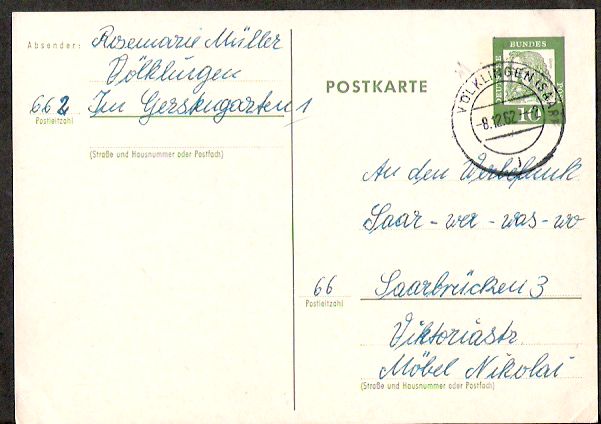 Absender: Rosemarie Müller
Völklingen
662 Im Gerstengarten 1
Postleitzahl
(Straße und Hausnummer oder Postfach)
POSTKARTE
DEUTSCHE BUNDES POST
10
VÖLKLINGEN (SAAR)
-8.12.62
An den Werbefunk
Saar - wer - was - wo
66 Saarbrücken 3
Postleitzahl
Viktoriastr.
Möbel Nikolai
(Straße und Hausnummer oder Postfach)